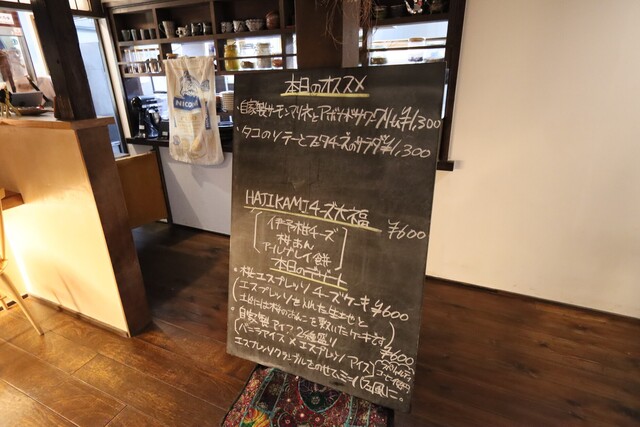 本日のオススメ
・自家製サーモンマリネとアボカドサワークリーム丼 ¥1,300
・タコのソテーとフェタチーズのサラダ ¥1,300
HAJIKAMIチーズ大福 ¥600
伊予柑チーズ
桜あん
アールグレイ餅
本日のデザート
・桜エスプレッソチーズケーキ ¥600
(エスプレッソを入れた生地と
土台には桜のあんこを敷いたケーキです)
・自家製アイス2種盛り ¥600
(バニラアイス×エスプレッソアイス)
エスプレッソクランブルをのせて
NICO